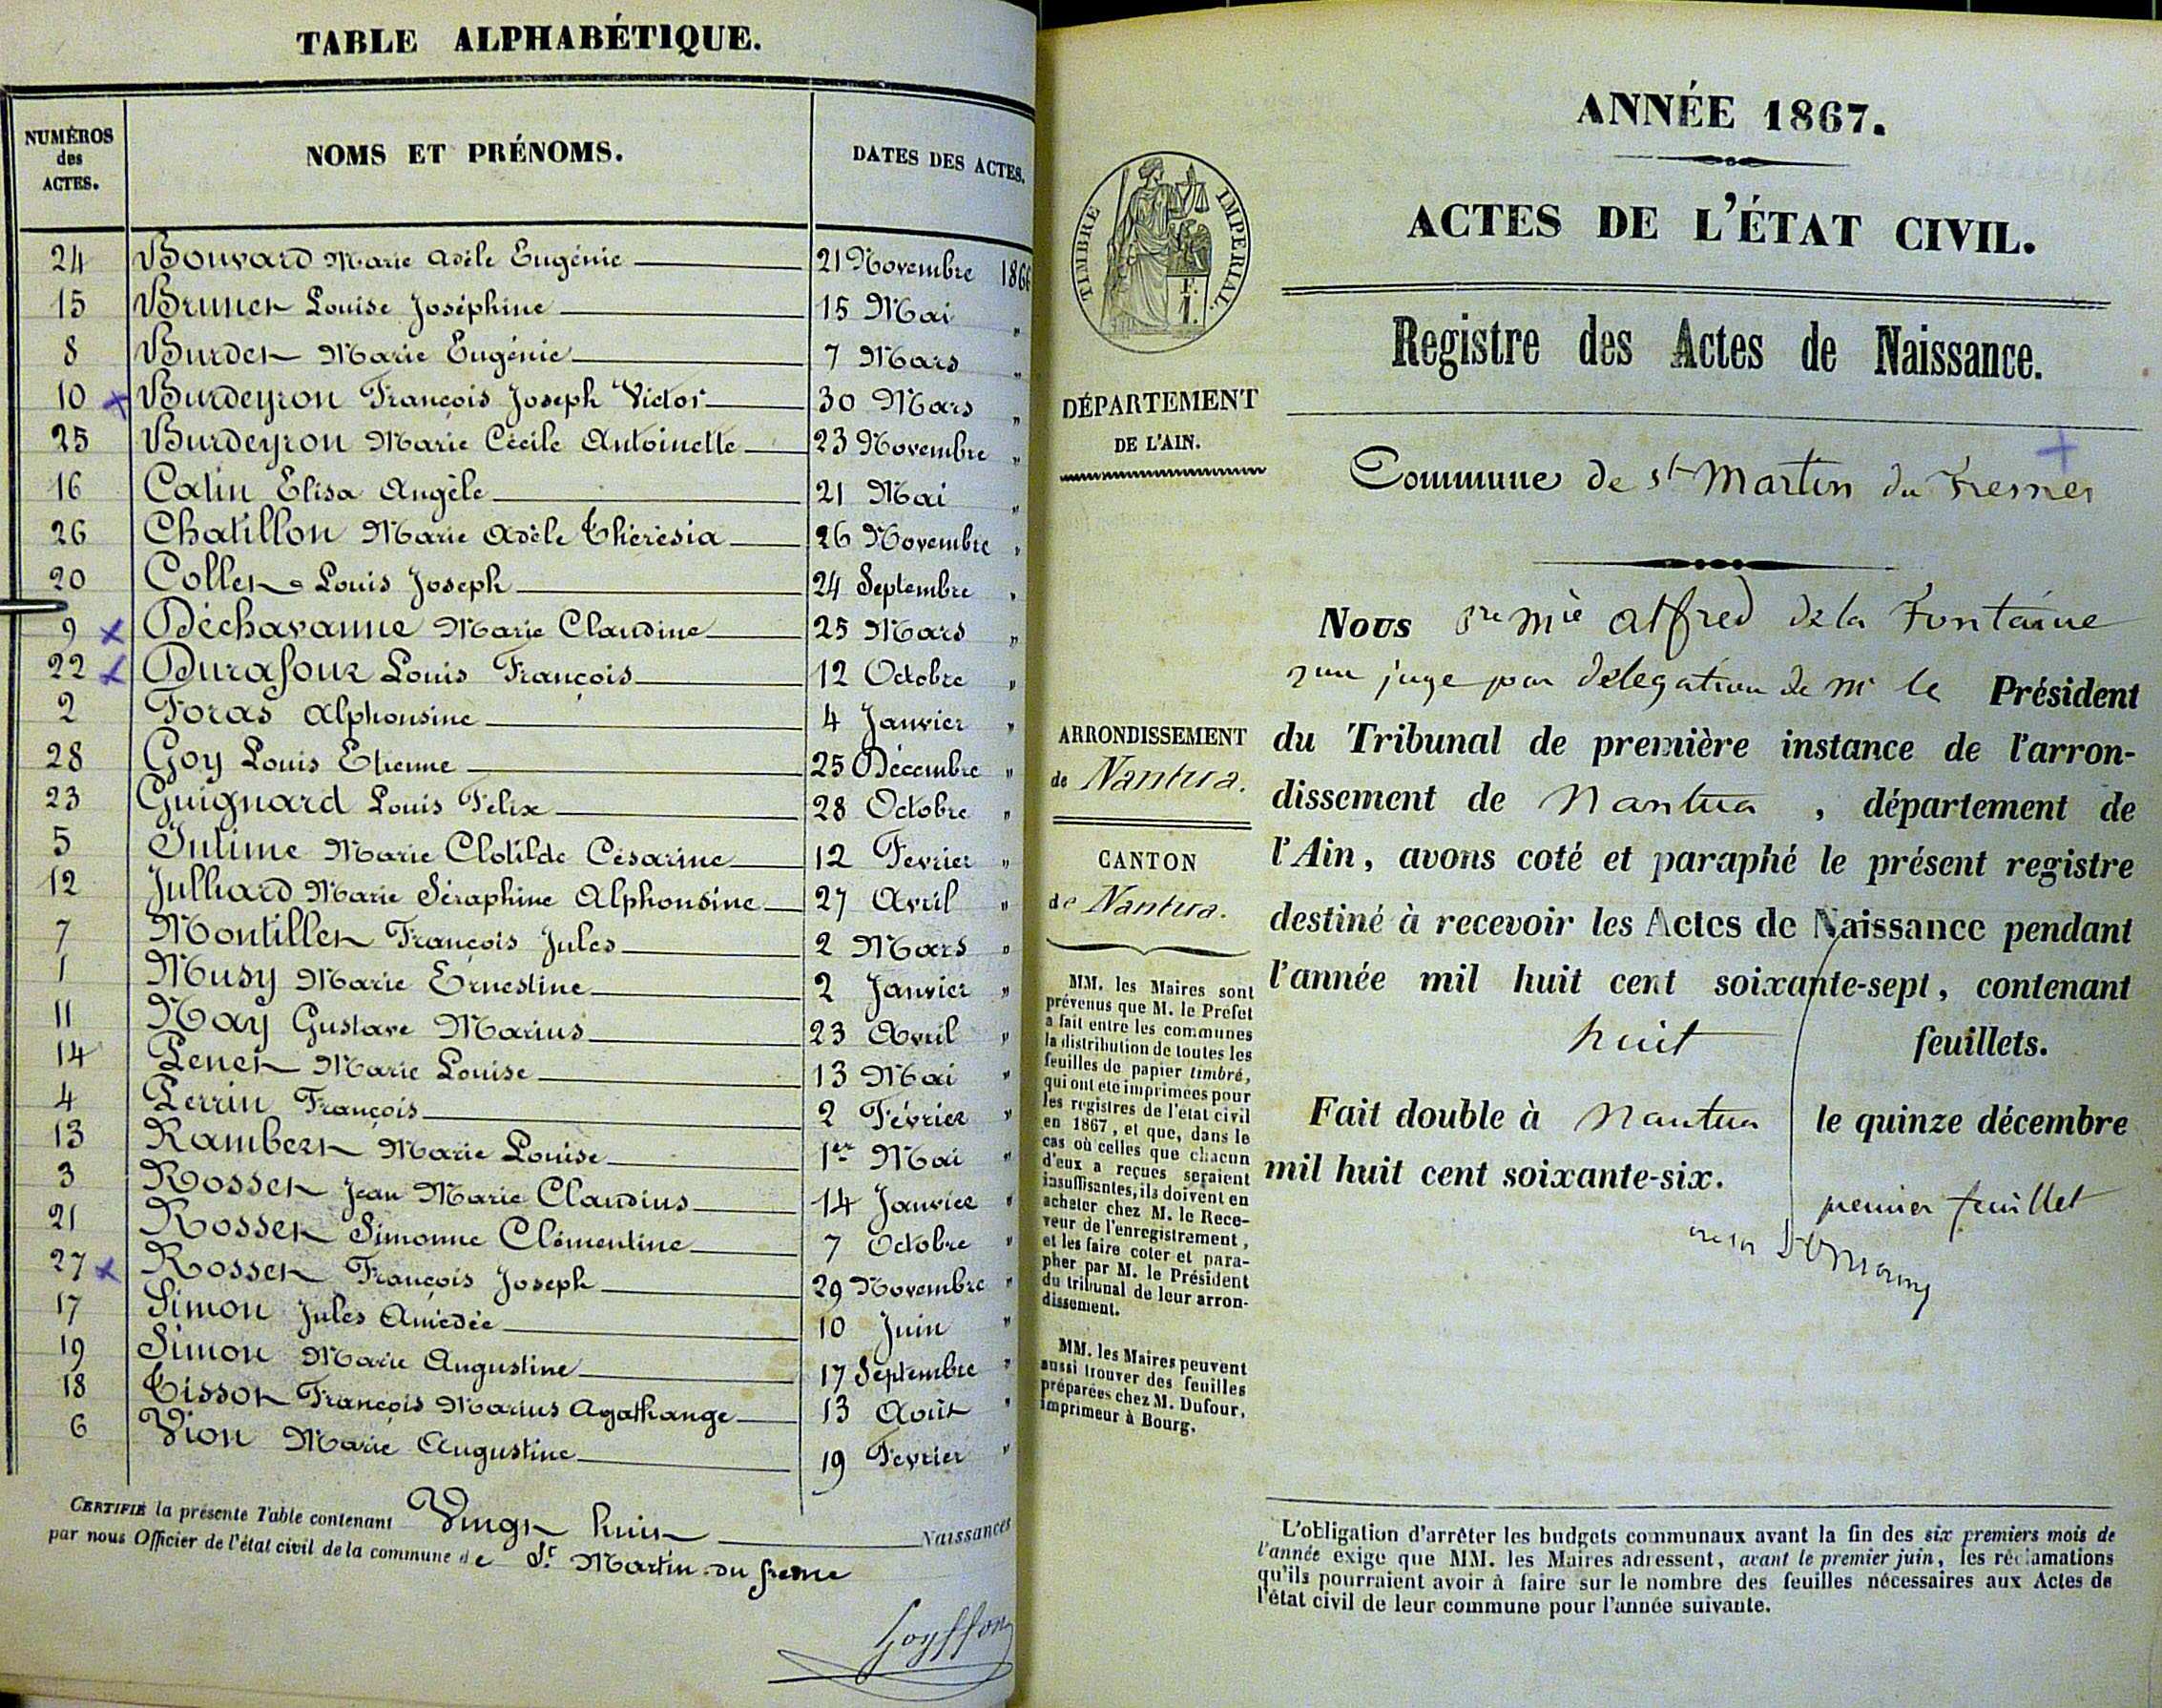 TABLE ALPHABÉTIQUE.
NUMÉROS des ACTES. NOMS ET PRÉNOMS. DATES DES ACTES.
24 Bouvard Marie Adèle Eugénie 21 Novembre 1866
15 Brunet Louise Joséphine 15 Mai "
8 Burdet Marie Eugénie 7 Mars "
10 x Burdeyron François Joseph Victor 30 Mars "
25 Burdeyron Marie Cécile Antoinette 23 Novembre "
16 Catin Elisa Angèle 21 Mai "
26 Chatillon Marie Adèle Thérèsia 26 Novembre "
20 Collet Louis Joseph 24 Septembre "
9 x Déchavanne Marie Claudine 25 Mars "
22 x Durafour Louis François 12 Octobre "
2 Foras Alphonsine 4 Janvier "
28 Goy Louis Etienne 25 Décembre "
23 Guignard Louis Felix 28 Octobre "
5 Intime Marie Clotilde Césarine 12 Fevrier "
12 Julliard Marie Séraphine Alphonsine 27 Avril "
7 Montillet François Jules 2 Mars "
1 Musy Marie Ernestine 2 Janvier "
11 Nay Gustave Marius 23 Avril "
14 Penet Marie Louise 13 Mai "
4 Perrin François 2 Février "
13 Rambert Marie Louise 1er Mai "
3 Rosset Jean Marie Claudius 14 Janvier "
21 Rosset Simonne Clémentine 7 Octobre "
27 x Rosset François Joseph 29 Novembre "
17 Simon Jules Amédée 10 Juin "
19 Simon Marie Augustine 17 Septembre "
18 Tissot François Marius Agathange 13 Août "
6 Vion Marie Augustine 19 Fevrier "
CERTIFIÉ la présente Table contenant Vingt huit Naissances
par nous Officier de l'état civil de la commune de St Martin du fresne
Goyffon
TIMBRE IMPERIAL.
F.
1.
DÉPARTEMENT
DE L'AIN.
ARRONDISSEMENT
de Nantua.
CANTON
de Nantua.
MM. les Maires sont
prévenus que M. le Préfet
a fait entre les communes
la distribution de toutes les
feuilles de papier timbré,
qui ont été imprimées pour
les registres de l'état civil
en 1867, et que, dans le
cas où celles que chacun
d'eux a reçues seraient
insuffisantes, ils doivent en
acheter chez M. le Rece-
veur de l'enregistrement,
et les faire coter et para-
pher par M. le Président
du tribunal de leur arron-
dissement.
MM. les Maires peuvent
aussi trouver des feuilles
préparées chez M. Dufour,
imprimeur à Bourg.
ANNÉE 1867.
ACTES DE L'ÉTAT CIVIL.
Registre des Actes de Naissance.
Commune de St Martin du Fresne
Nous alfred de la Fontaine
juge par délégation de Mr le Président
du Tribunal de première instance de l'arron-
dissement de Nantua, département de
l'Ain, avons coté et paraphé le présent registre
destiné à recevoir les Actes de Naissance pendant
l'année mil huit cent soixante-sept, contenant
huit feuillets.
Fait double à Nantua le quinze décembre
mil huit cent soixante-six.
premier feuillet
L'obligation d'arrêter les budgets communaux avant la fin des six premiers mois de
l'année exige que MM. les Maires adressent, avant le premier juin, les réclamations
qu'ils pourraient avoir à faire sur le nombre des feuilles nécessaires aux Actes de
l'état civil de leur commune pour l'année suivante.